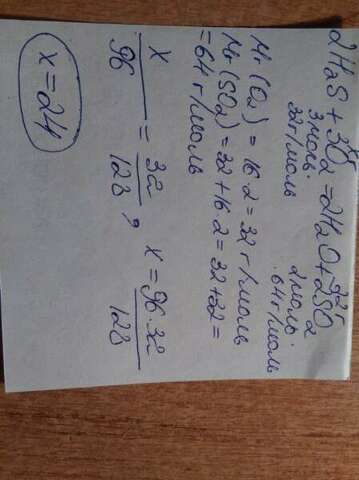 2H2S + 3O2 = 2H2O + 2SO2
3моль
2моль.
32г/моль
64г/моль
Mr (O2) = 16·2 = 32 г/моль
Mr (SO2) = 32 + 16·2 = 32 + 32 =
= 64 г/моль
x/96 = 32/128, x = 96·32/128
x = 24